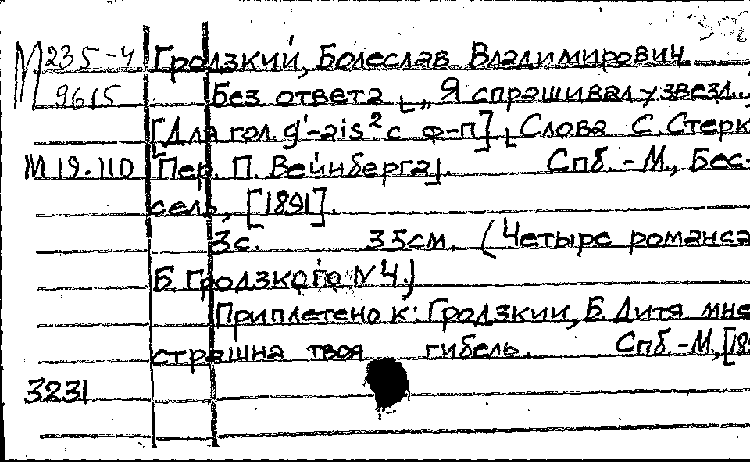 М 235-4 Гродзкий, Болеслав Владимирович
9615 Без ответа „Я спрашивал у звезд..
[Для гол. g'-ais² с ф-п], Слова С. Стерк
М 19.110 Пер. П. Вейнберга]. Спб.-М., Бес-
сель, [1891].
3с. 35см. (Четыре романса
Б. Гродзкого №4.)
Приплетено к: Гродзкий, Б. Дитя мне
страшна твоя гибель. Спб.-М., [18
3231